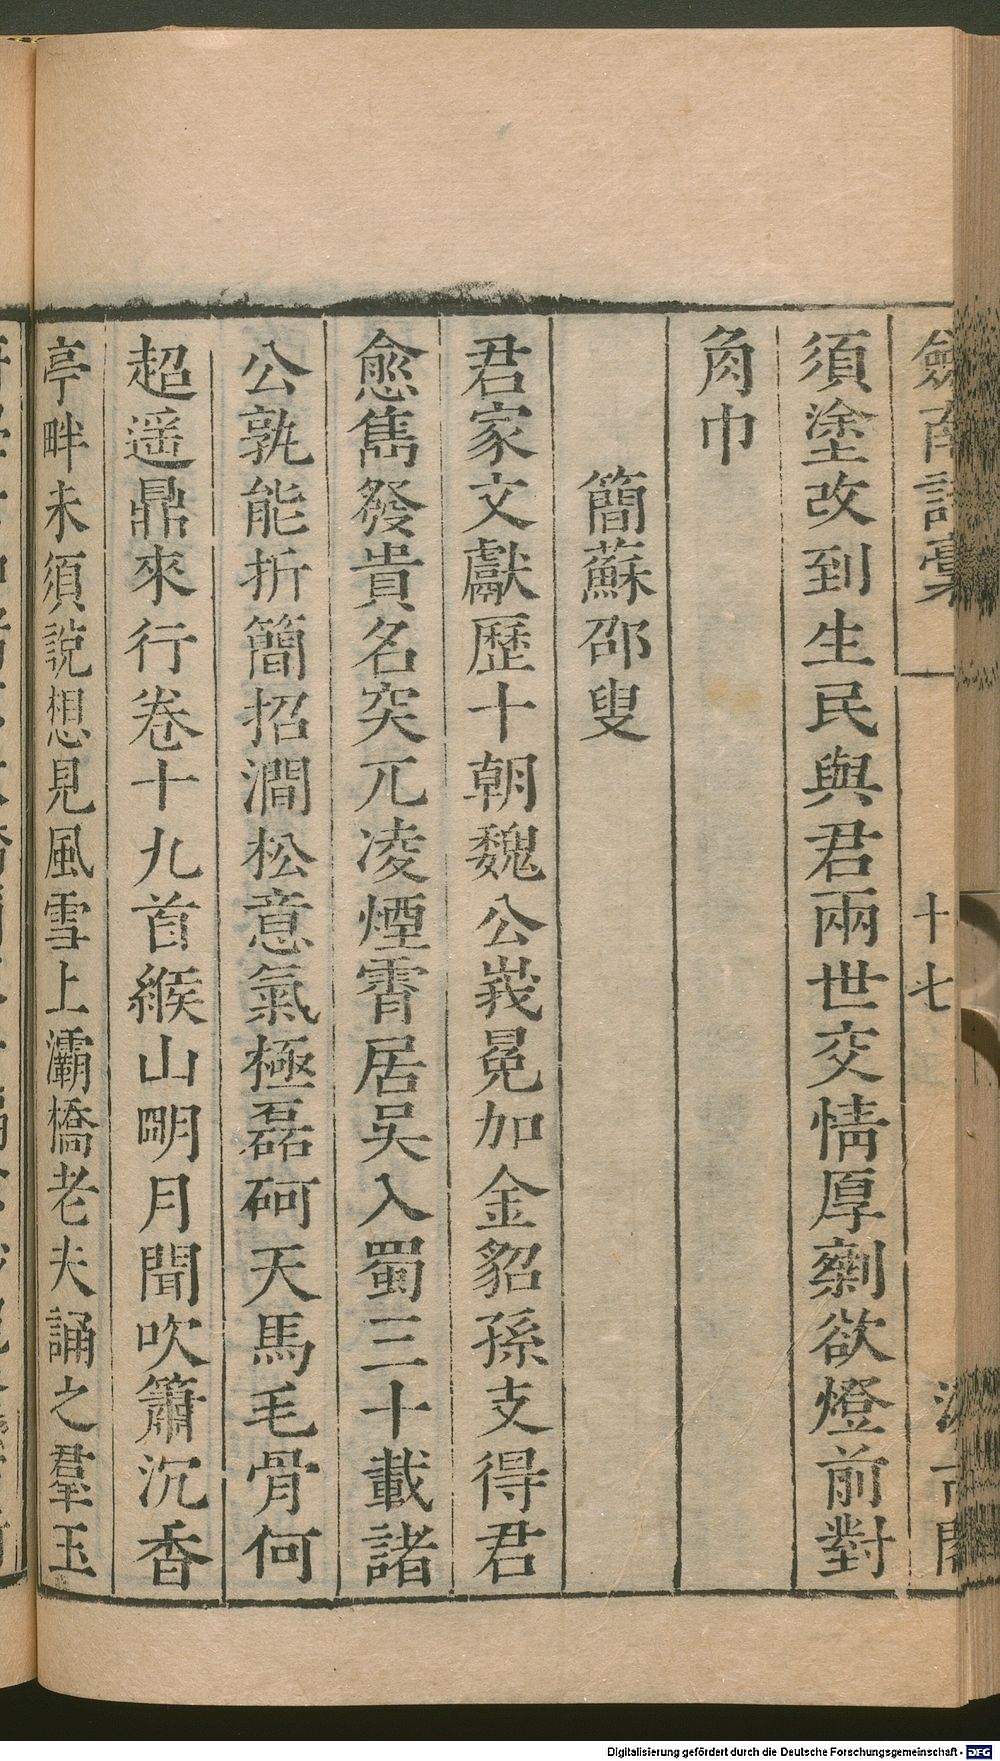 劔南詩稾
十七
須塗改到生民與君兩世交情厚剩欲燈前對
角巾
簡蘇邵叟
君家文獻歷十朝魏公峩冕加金貂孫支得君
愈雋發貴名突兀凌煙霄居吳入蜀三十載諸
公孰能折簡招澗松意氣極磊砢天馬毛骨何
超遥鼎來行卷十九首緱山明月聞吹簫沉香
亭畔未須説想見風雪上灞橋老夫誦之羣玉
Digitalisierung gefördert durch die Deutsche Forschungsgemeinschaft - DFG